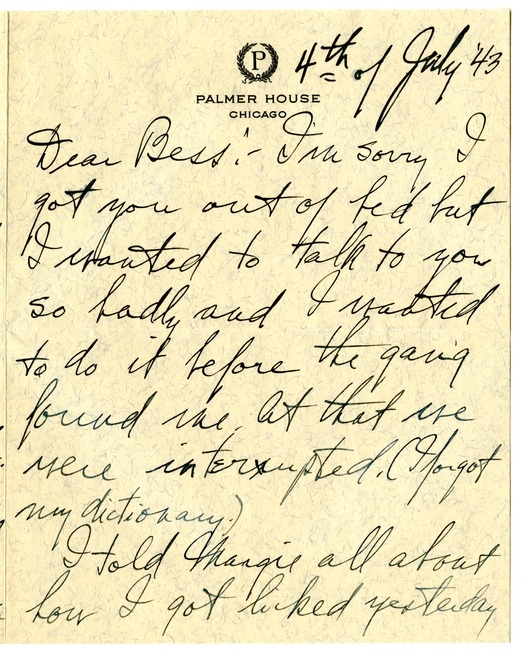 P
4th of July '43
PALMER HOUSE
CHICAGO
Dear Bess:- I'm sorry I
got you out of bed but
I wanted to talk to you
so badly and I wanted
to do it before the gang
found me. At that we
were interrupted. (I forgot
my dictionary.)
I told Margie all about
how I got licked yesterday